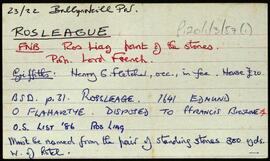 23/22 Ballynakill Par.
P120/1/3/57(1)
ROSLEAGUE
FNB Ros Liag point of the stones.
Prn. Lord French.
Griffiths: Henry G. Fletcher, occ., in fee. House £20.
BSD p.31. ROSLEAGE. 1641 EDMUND
O FLAHARTYE. DISPOSED TO FFRANCIS BROWNE
O.S. LIST '86 Ros Liag
Must be named from the pair of standing stones 300 yds.
W. of Hotel.